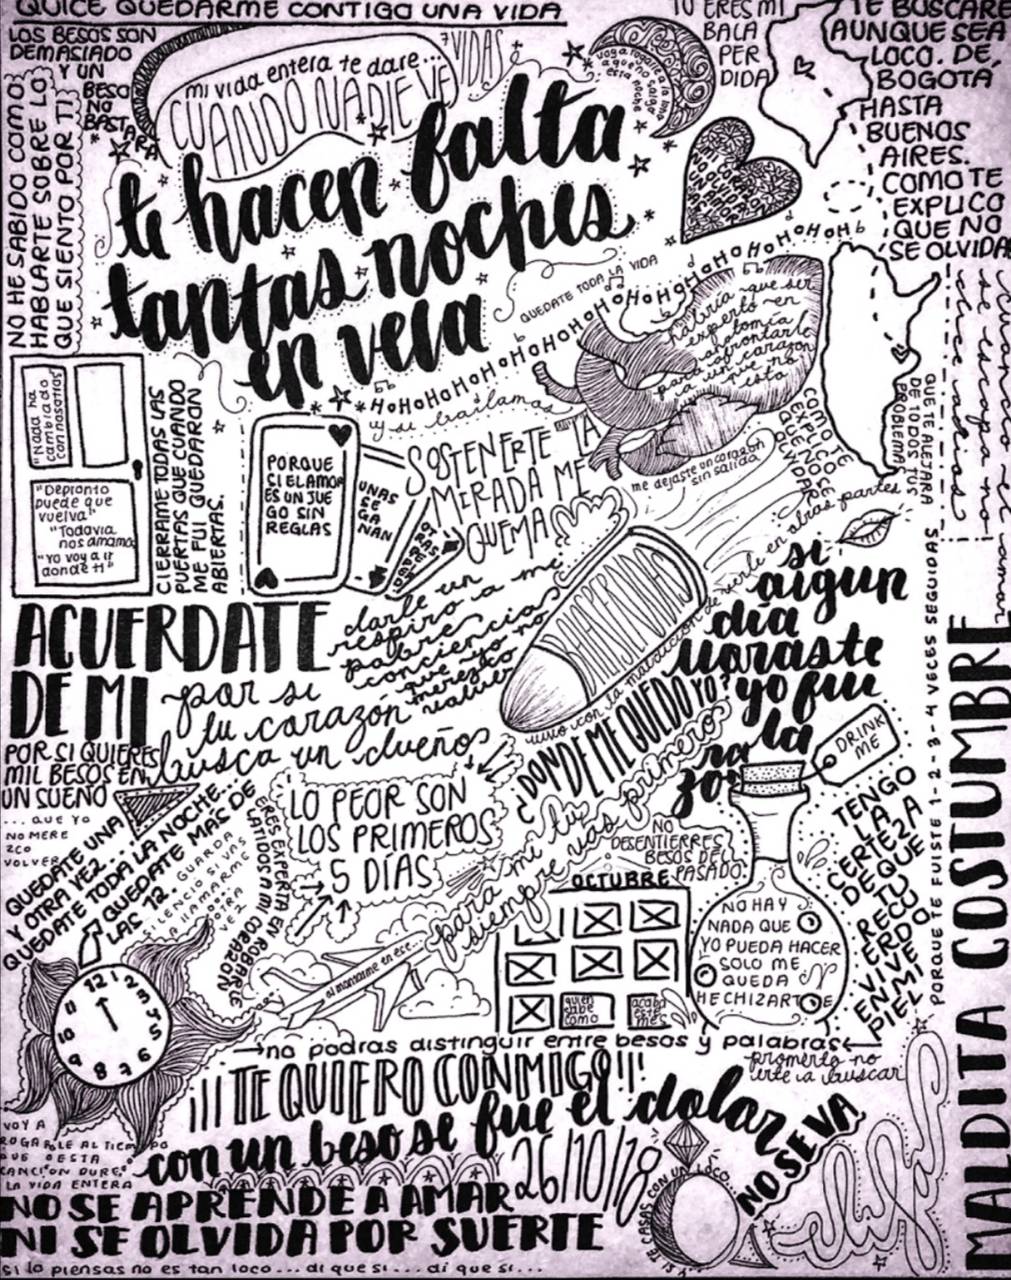 QUICE QUEDARME CONTIGO UNA VIDA
LOS BESOS SON
DEMASIADO
Y UN
BESO
NO
BASTARA
NO HE SABIDO COMO
HABLARTE SOBRE LO
QUE SIENTO POR TI
mi vida entera te dare...
CUANDO NADIE VE
7 VIDAS
TU ERES MI
BALA
PER
DIDA
TE BUSCARE
AUNQUE SEA
LOCO. DE,
BOGOTA
HASTA
BUENOS
AIRES.
COMO TE
EXPLICO
QUE NO
SE OLVIDA
te hacen falta
tantas noches
en vela
QUEDATE TODA LA VIDA
HoHoHoHoHoHoHoHoHoHoHoHoHoHoH
y si bailamos
habría que ser
experto en
anatomía
para afrontarlo
a un corazon
que no
esta
me dejaste un corazon
sin salida
COMO TE
EXPLICO
QUE NO SE
OLVIDA
QUE TE ALEJARA
DE TODOS TUS
PROBLEMAS
cuando el amor
se escapa no
dice adios
"Nada ha
cambiado
con nosotras"
"Depronto
puede que
vuelva"
"Todavia
nos amamos"
"Yo voy a ir
donde ti"
CIERRAME TODAS LAS
PUERTAS QUE CUANDO
ME FUI QUEDARON
ABIERTAS.
PORQUE
SI EL AMOR
ES UN JUE
GO SIN
REGLAS
UNAS
SE
GA
NAN
OTRAS
SE
PIERDEN
SOSTENERTE LA
MIRADA ME
QUEMA
darle un
respiro a mi
pobre
conciencia
que yo no
merezco
volver
ACUERDATE
DE MI
por si
tu corazón
busca un dueño
POR SI QUIERES
MIL BESOS EN
UN SUEÑO
... QUE YO
NO MERE
ZCO
VOLVER
vivo con la maldicion de verte en
otras partes
¿DONDE ME QUEDO YO?
si
algun
día
lloraste
yo fui
la
razon
DRINK
ME
QUEDATE UNA
Y OTRA VEZ...
QUEDATE TODA LA NOCHE...
QUEDATE MAS DE
LAS 12.
GUARDA
SILENCIO SI VAS
A LLAMARME
OTRA
VEZ
ERES EXPERTA EN ROBARLE
LATIDOS A MI CORAZON
LO PEOR SON
LOS PRIMEROS
5 DÍAS
para mi tu
siempre vas primero
NO
DESENTIERRES
BESOS DEL
PASADO.
OCTUBRE
quien
sabe
como
acaba
este
mes
NO HAY
NADA QUE
YO PUEDA HACER
SOLO ME
QUEDA
HECHIZARTE
TENGO
LA
CERTEZA
DE QUE
TU
RECU
ERDO
VIVE
EN MI
PIEL
PORQUE TE FUISTE 1-2-3-4 VECES SEGUIDAS
MALDITA COSTUMBRE
al montarme en ese...
12 1 2 3 4 5 6 7 8 9 10 11
→no podras distinguir entre besos y palabras←
prometo no
irte a buscar
¡¡¡TE QUIERO CONMIGO!!!
con un beso se fue el dolor
VOY A
ROGARLE AL TIEMPO
QUE ESTA
CANCION DURE
LA VIDA ENTERA
26/10/18
Y SI TE CASAS CON UN LOCO
NO SE VA
NO SE APRENDE A AMAR
NI SE OLVIDA POR SUERTE
si lo piensas no es tan loco... di que si... di que si...